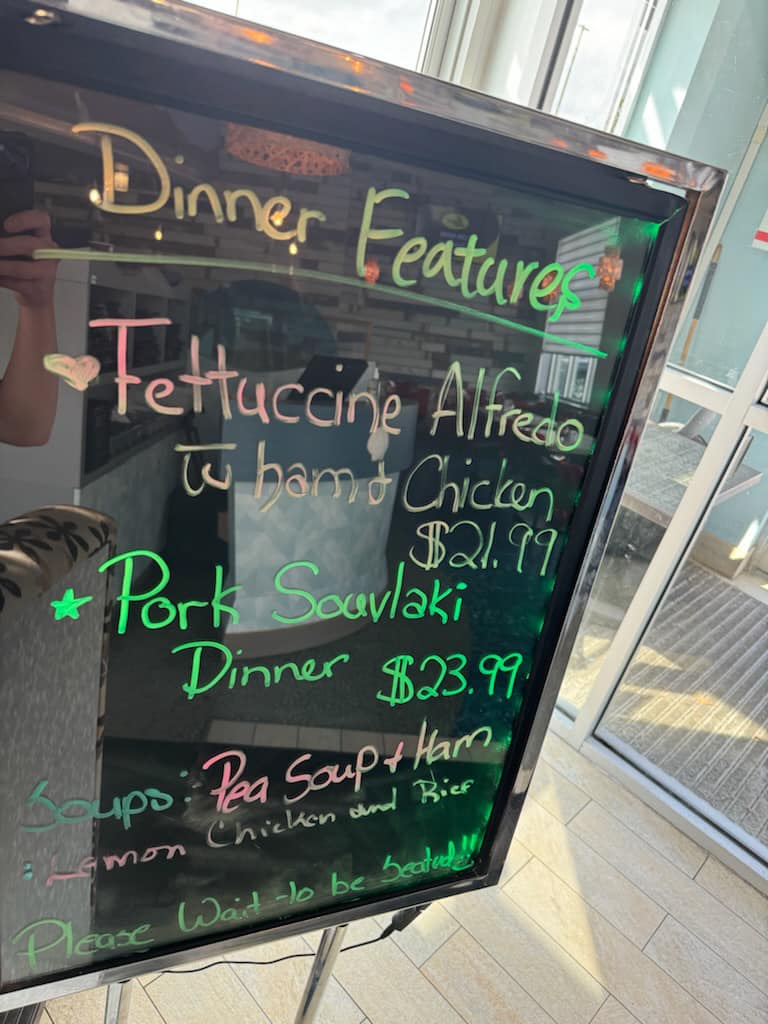 Dinner Features
Fettuccine Alfredo
w ham & Chicken
$21.99
Pork Souvlaki
Dinner $23.99
Soups: Pea Soup & Ham
: Lemon Chicken and Rice
Please Wait to be Seated!!